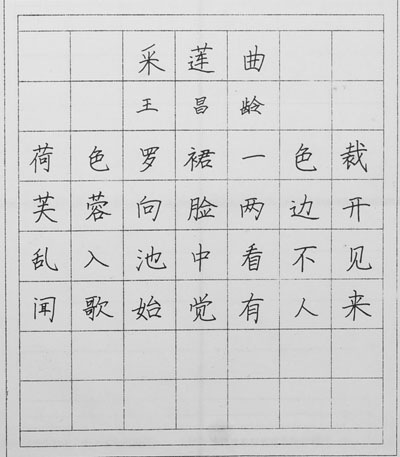 采莲曲
王昌龄
荷色罗裙一色裁
芙蓉向脸两边开
乱入池中看不见
闻歌始觉有人来